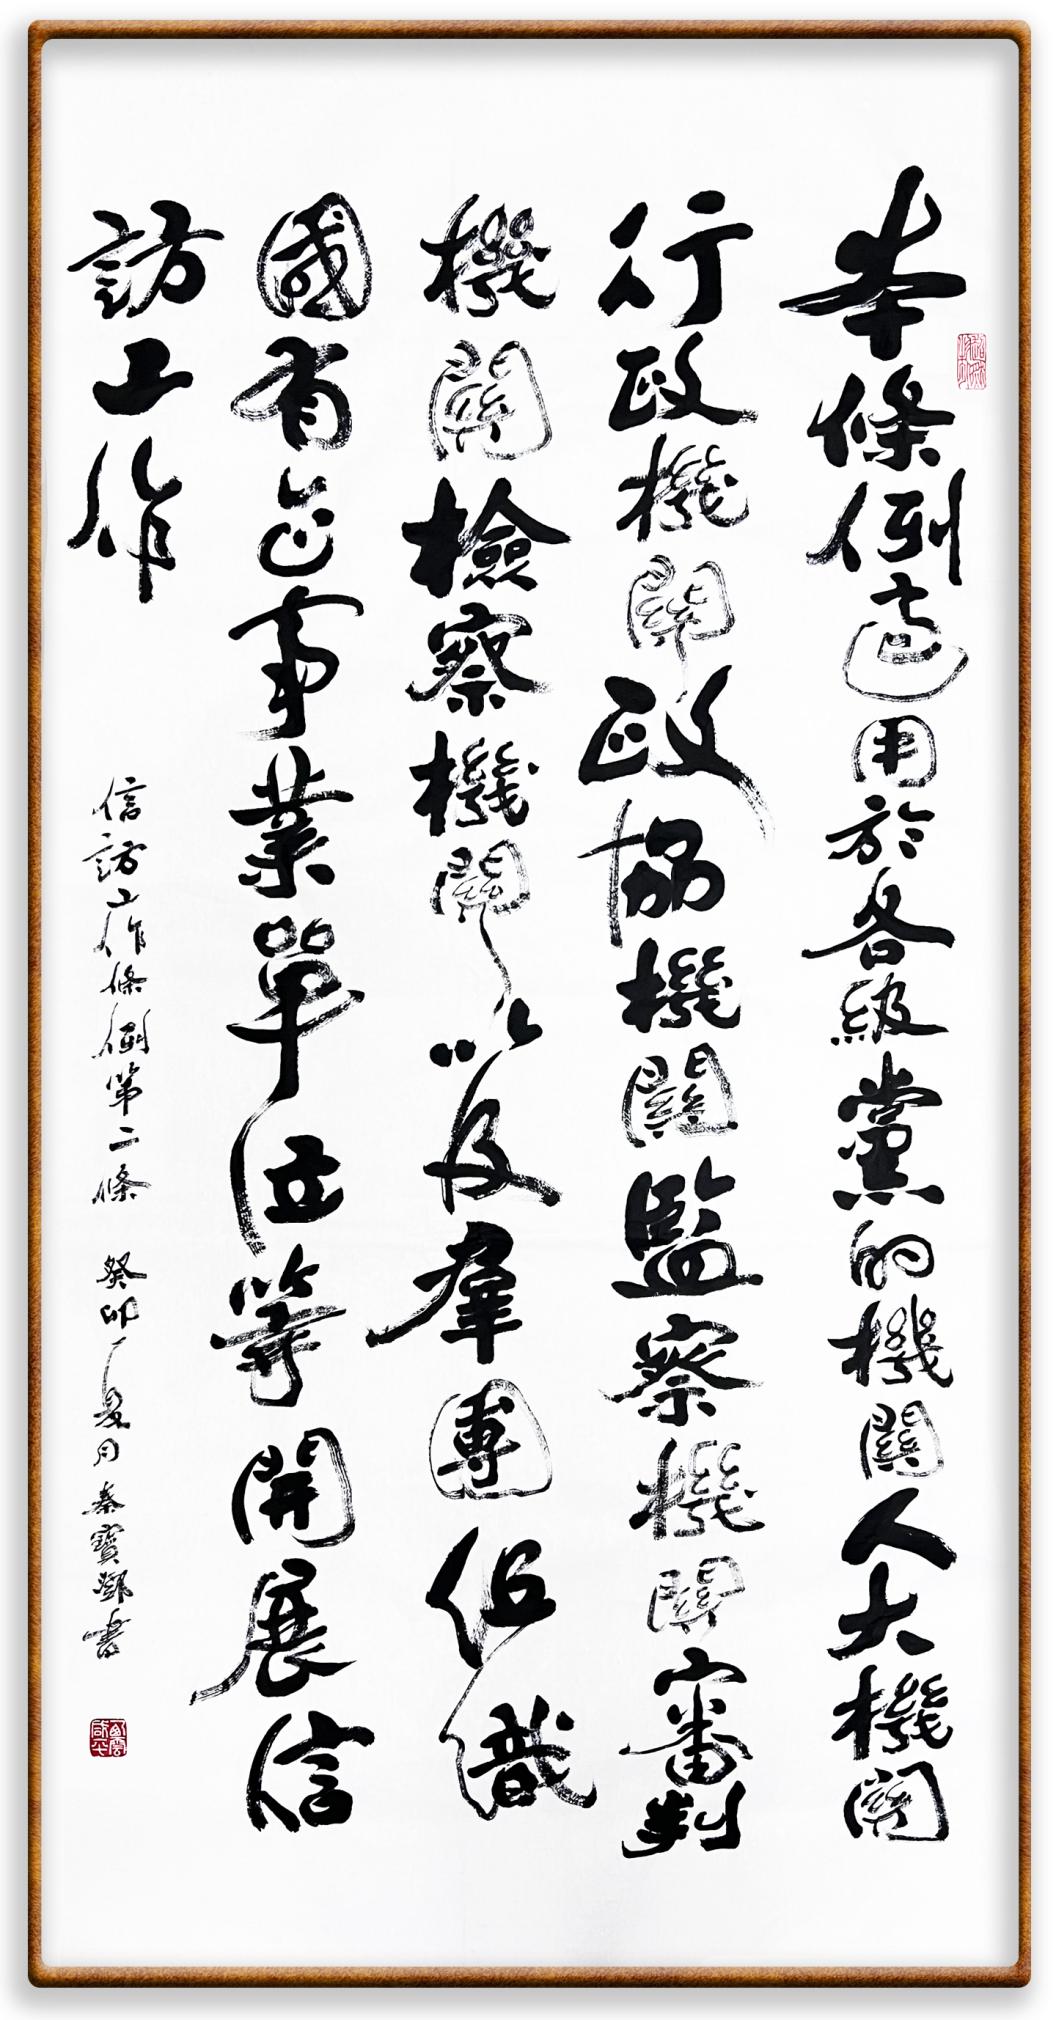 本條例適用於各級黨的機關人大機關
行政機關政協機關監察機關審判
機關檢察機關以及羣團組織
國有企事業單位等開展信
訪工作
信訪工作條例第二條 癸卯夏月秦寶鄧書